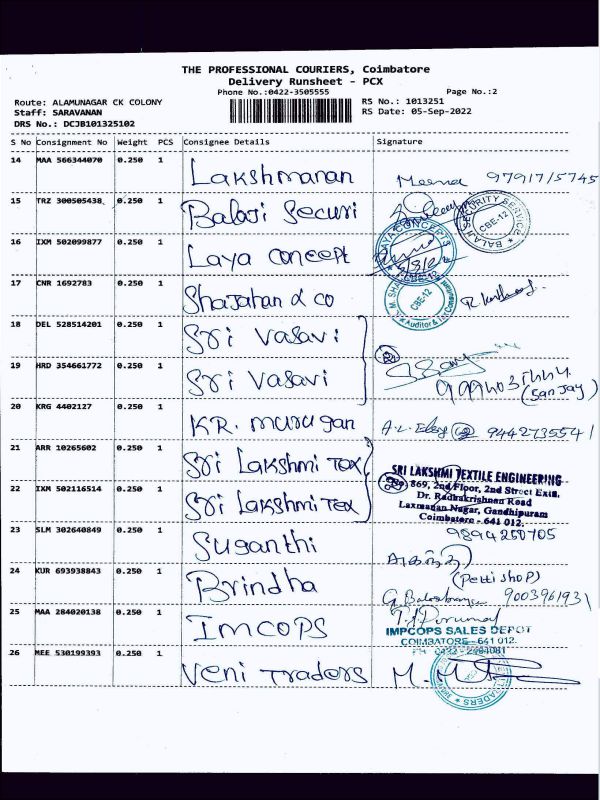 THE PROFESSIONAL COURIERS, Coimbatore
Delivery Runsheet - PCX
Phone No.:0422-3505555
Page No.:2
Route: ALAMUNAGAR CK COLONY
RS No.: 1013251
Staff: SARAVANAN
RS Date: 05-Sep-2022
DRS No.: DCJB101325102
S No Consignment No Weight PCS Consignee Details Signature
14 MAA 566344070 0.250 1 Lakshmanan Meena
15 TRZ 300505438 0.250 1 Balaji Securi
BALAJI SECURITY SERVICE CBE-12
16 IXM 502099877 0.250 1 Laya concept
LAYA CONCEPTS CBE-12
17 CNR 1692783 0.250 1 Shajahan & co
CBE-12 Auditor &
18 DEL 528514201 0.250 1 Sri Vasavi
19 HRD 354661772 0.250 1 Sri Vasavi
(Sanjay)
20 KRG 4402127 0.250 1 KR. murugan 9442735541
21 ARR 10265602 0.250 1 Sri Lakshmi Tex
22 IXM 502116514 0.250 1 Sri Lakshmi Tex
SRI LAKSHMI TEXTILE ENGINEERING
No 869, 2nd Floor, 2nd Street Extn.
Dr. Radhakrishnan Road
Laxmanan Nagar, Gandhipuram
Coimbatore - 641 012.
23 SLM 302640849 0.250 1 Suganthi 9894250705
24 KUR 693938843 0.250 1 Brindha (Petti shop)
9003961931
25 MAA 284020138 0.250 1 IMCOPS
IMPCOPS SALES DEPOT
COIMBATORE-641 012.
26 MEE 530199393 0.250 1 Veni Traders
TRADERS